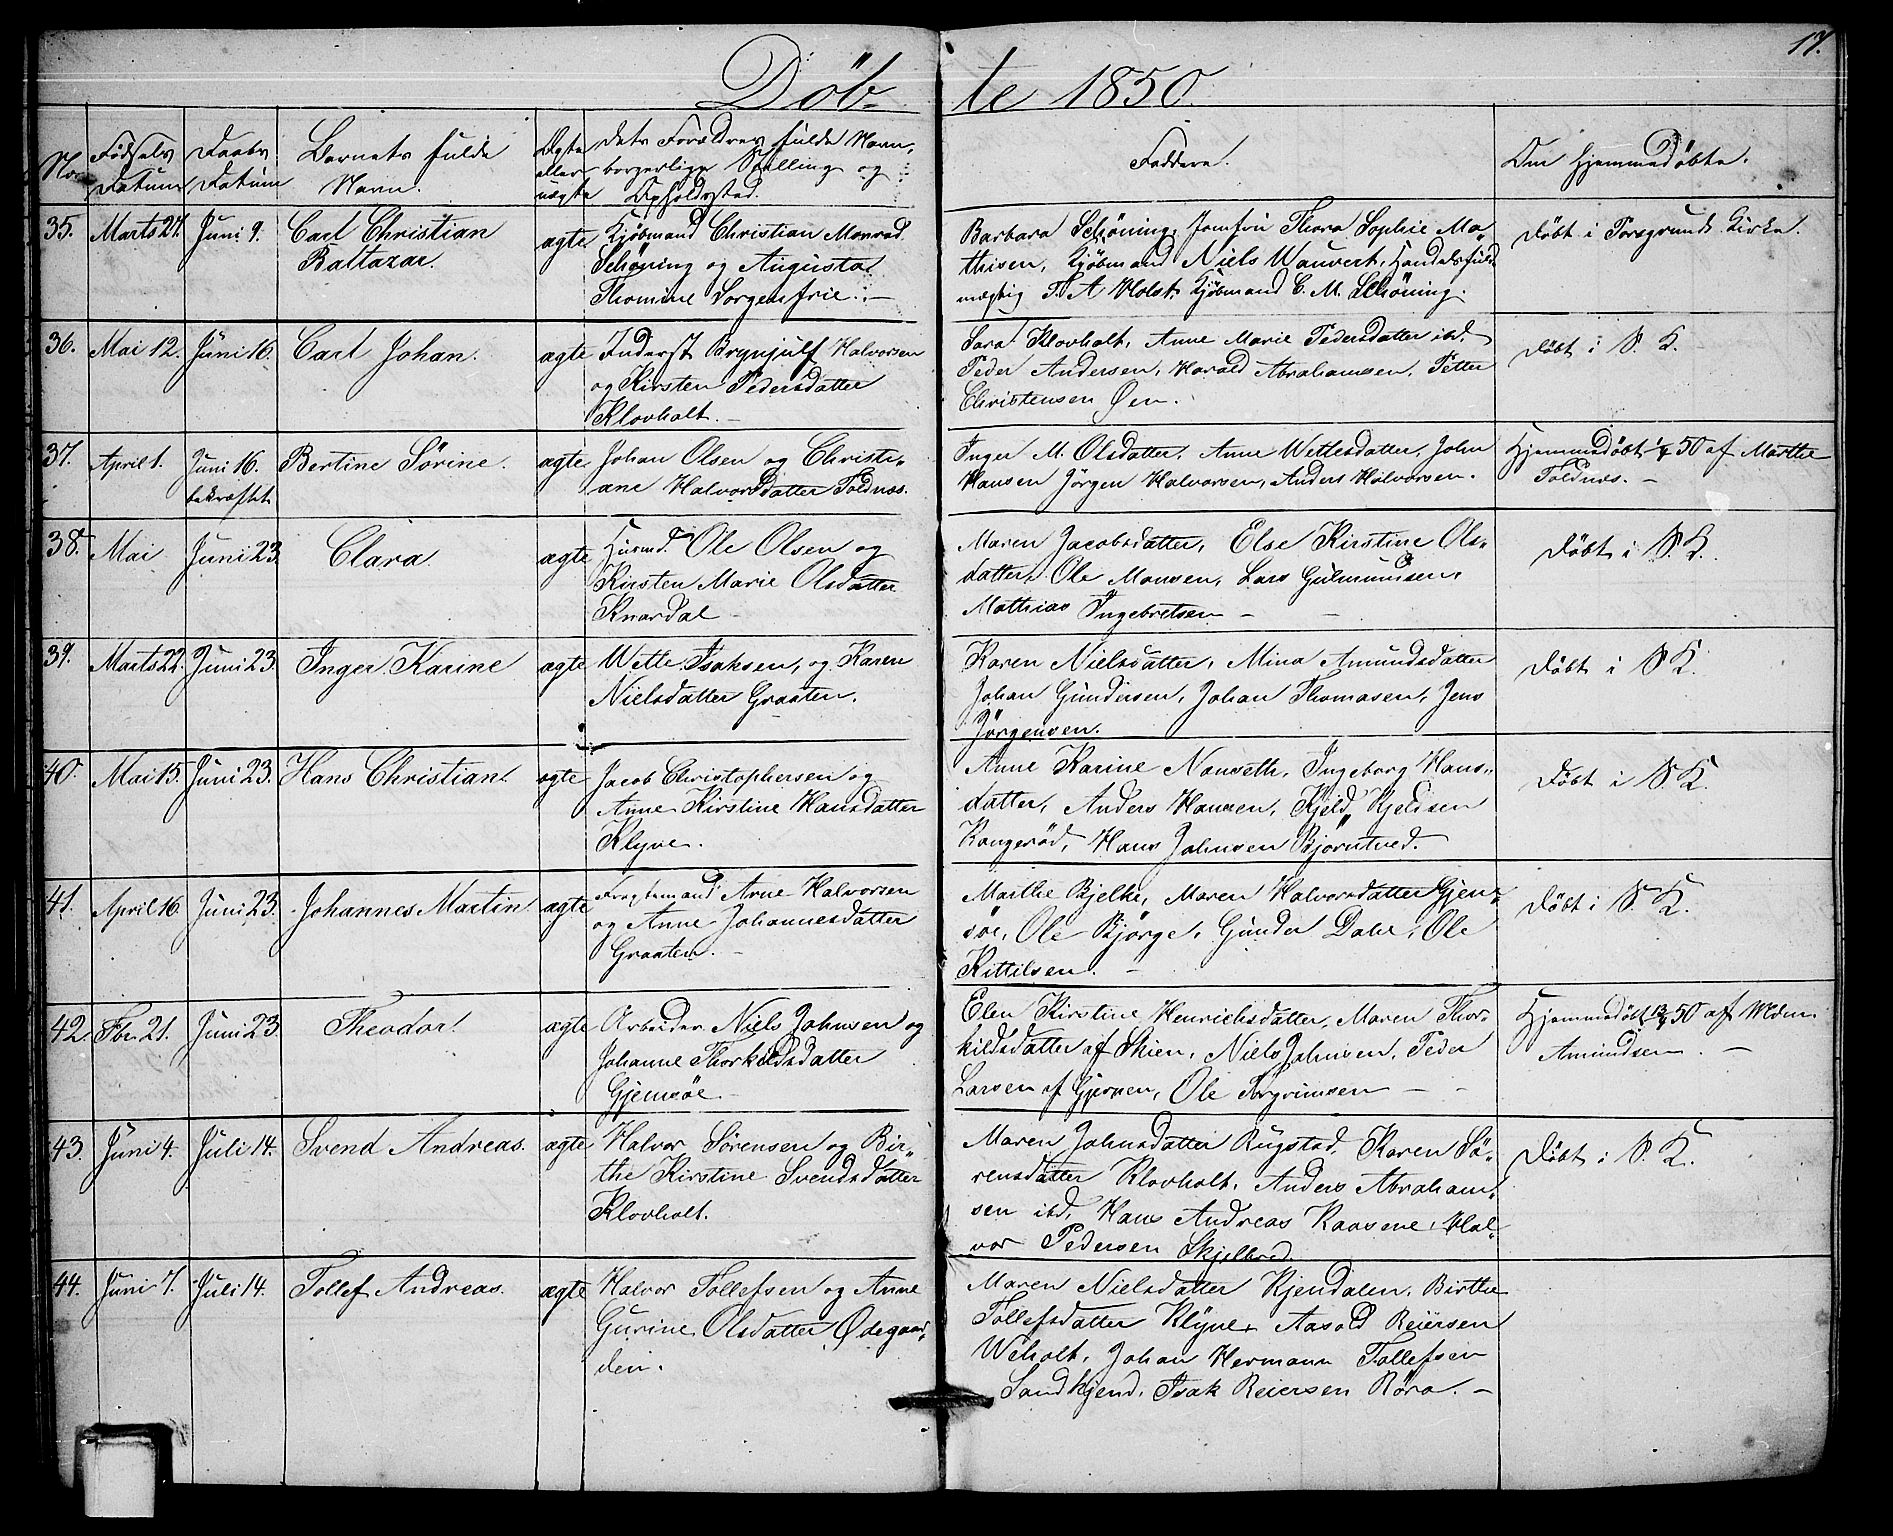 17.
Döbte 1850.
No
Födsels Datum
Daabs Datum
Barnets fulde Navn.
Ægte eller uægte
dets Forældres fulde Navn, borgerlige Stilling og Opholdssted.
Faddere.
Om hjemmedöbte.
35. Marts 27. Juni 9. Carl Christian Baltazar. ægte
Kjöbmand Christian Monrad
Schöning og Augusta
Thomine Sorgenfrie. –
Barbara Schöning, Jomfru Thora Sophie Ma-
thisen, Kjöbmand Niels Wauvert, Handelsfuld-
mægtig T. A Holst, Kjöbmand C. M. Schöning.
Döbt i Porsgrunds Kirke.
36. Mai 12. Juni 16. Carl Johan. ægte
Inderst Brynjulf Halvorsen
og Kirsten Pedersdatter
Klovholt. –
Sara Klovholt, Anne Marie Pedersdatter ibd.
Peder Andersen, Harald Abrahamsen, Petter
Christensen Øen.
Döbt i S. K.
37. April 1. Juni 16. bekræftet Bertine Sörine. ægte
Johan Olsen og Christi-
ane Halvorsdatter Foldnæs.
Inger M. Olsdatter, Anne Wetlesdatter, John
Hansen Jörgen Halvorsen, Anders Halvorsen.
Hjemmedöbt 1/4 50 af Marthe
Foldnæs. –
38. Mai Juni 23 Clara ægte
Husmd. Ole Olsen og
Kirsten Marie Olsdatter
Knardal –
Maren Jacobsdatter, Else Kirstine Ols-
datter, Ole Mansen, Lars Gulmundsen,
Mathias Ingebretsen – –
Döbt i S. K.
39. Marts 22. Juni 23. Inger Karine ægte
Wetle Isaksen, og Karen
Nielsdatter Graaten.
Karen Nielsdatter, Mina Amundsdatter
Johan Gundersen, Johan Thomasen, Jens
Jörgensen.
Döbt i S. K.
40. Mai 15. Juni 23. Hans Christian. ægte
Jacob Christophersen og
Anne Kirstine Hansdatter
Klyve.
Anne Karine Nauseth, Ingeborg Hans-
datter, Anders Hansen, Kjeld Kjeldsen
Kongeröd, Hans Johnsen Bjørntved.
Döbt i S. K.
41. April 16. Juni 23. Johannes Martin. ægte
Fragtemand Arne Halvorsen
og Anne Johannesdatter
Graaten. –
Marthe Bjelke, Maren Halvorsdatter Gjem-
söe, Ole Björge, Gunder Dahl, Ole
Kittilsen. –
Döbt i S. K.
42. Fbr. 21. Juni 23 Theodor. ægte
Arbeider Niels Johnsen og
Johanne Thorkildsdatter
Gjemsöe.
Elen Kirstine Henrichsdatter, Maren Thor-
kildsdatter af Skien, Niels Johnsen, Peder
Larsen af Gjerpen, Ole Torgrimsen – –
Hjemmedöbt 50 af
Amundsen. –
43. Juni 4. Juli 14. Svend Andreas. ægte
Halvor Sörensen og Bir-
the Kirstine Svendsdatter
Klovholt.
Maren Johnsdatter Rugstad, Karen Sö-
rensdatter Klovholt, Anders Abraham-
sen ibd, Hans Andreas Raasene, Hal-
vor Pedersen Skjelbred.
Döbt i S. K.
44. Juni 7. Juli 14. Tollef Andreas. ægte
Halvor Tollefsen og Anne
Gurine Olsdatter Ødegaar-
den.
Maren Nielsdatter Kjendalen, Birthe
Tollefsdatter Klyve, Aasold Reiersen
Weholt, Johan Hermann Tollefsen
Sandkjend, Isak Reiersen Röra. –